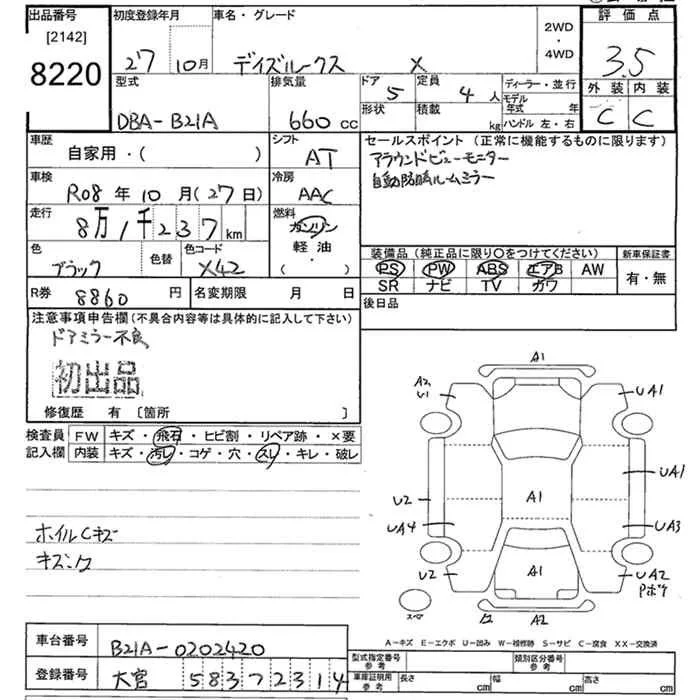 出品番号 初度登録年月 車名・グレード 2WD・4WD 評価点
[2142]
8220 27 10月 デイズルークス X 3.5
型式 排気量 ドア 5 定員 4人 ディーラー・並行 外装 内装
DBA-B21A 660cc 形状 積載 kg モデル年式 年 ハンドル 左・右 C C
車歴 自家用・( ) シフト AT
セールスポイント(正常に機能するものに限ります)
アラウンドビューモニター
自動防眩ルームミラー
車検 R08年10月(27日) 冷房 AAC
走行 8万1千237km 燃料 ガソリン 軽油・( )
色 ブラック 色替 色コード X42
装備品(純正品に限り○をつけてください) 新車保証書
PS PW ABS エアB AW 有・無
SR ナビ TV カワ
R券 8860円 名変期限 月 日
後日品
注意事項申告欄(不具合内容等は具体的に記入して下さい)
ドアミラー不良
初出品
修復歴 有 [箇所 ]
検査員 記入欄
FW キズ・飛石・ヒビ割・リペア跡・×要
内装 キズ・汚レ・コゲ・穴・スレ・キレ・破レ
ホイルCキズ
A1
A2
U1
UA1
UA1
U2
A1
UA4
UA3
U2
A1
UA2
Pボケ
スペア
A2
A-キズ E-エクボ U-凹み W-補修跡 S-サビ C-腐食 XX-交換済
車台番号 B21A-0202420
登録番号 大宮 583 7 2314
型式指定番号 参考 類別区分番号 参考
車庫証明用 参考 長さ cm 幅 cm 高さ cm